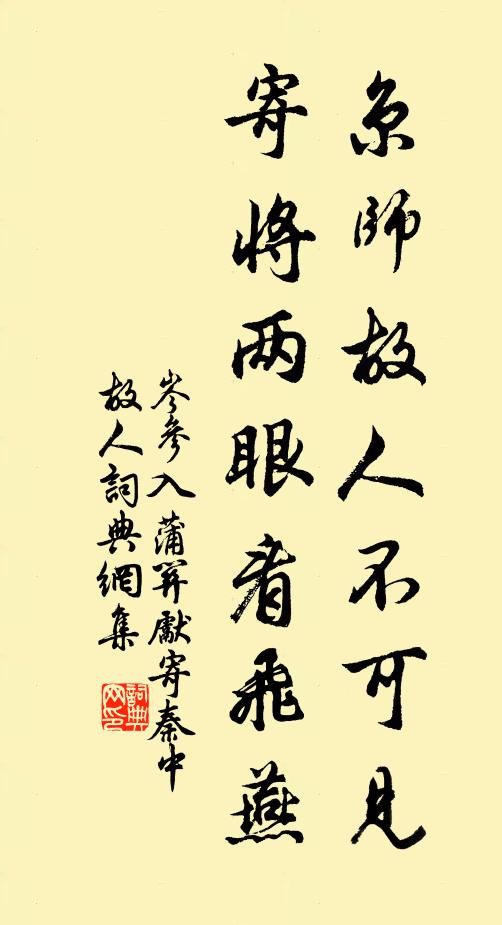 京師故人不可見
寄將两眼看飛燕
岑參入蒲關獻寄秦中
故人詞典網集
詞典
网印